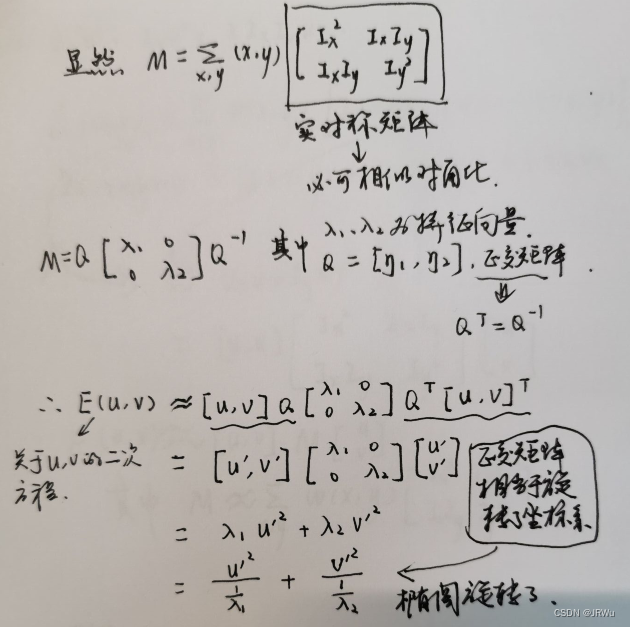 显然 M = Σ_{x,y} (x,y) [ Ix² IxIy ; IxIy Iy² ]
实对称矩阵
↓
必可相似对角化.
M=Q [ λ₁ 0 ; 0 λ₂ ] Q⁻¹ 其中 λ₁、λ₂为特征向量.
Q = [η₁, η₂], 正交矩阵.
⇓
Qᵀ=Q⁻¹
∴ E(u,v) ≈ [u,v] Q [ λ₁ 0 ; 0 λ₂ ] Qᵀ [u,v]ᵀ
关于u,v的二次
方程.
= [u',v'] [ λ₁ 0 ; 0 λ₂ ] [ u' ; v' ]
正交矩阵
相当于旋
转了坐标系
= λ₁ u'² + λ₂ v'²
= u'²/(1/λ₁) + v'²/(1/λ₂) ← 椭圆旋转了.
CSDN @JRWu